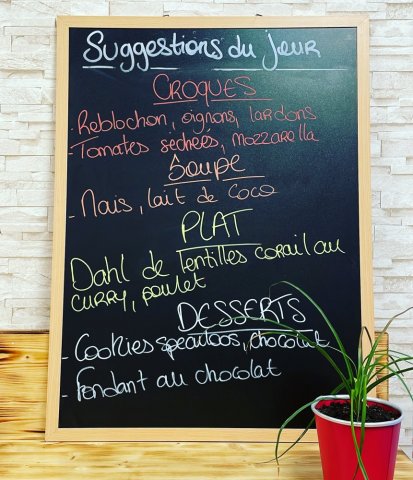 Suggestions du jour
CROQUES
- Reblochon, oignons, lardons
- Tomates séchées, mozzarella
Soupe
- Maïs, lait de coco
PLAT
Dahl de lentilles corail au
curry, poulet
DESSERTS
- Cookies speculoos, chocolat
- Fondant au chocolat